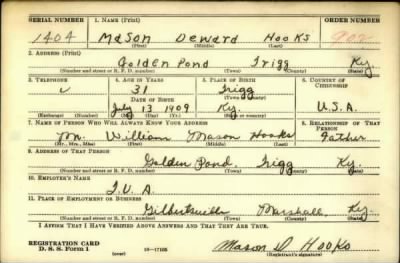 SERIAL NUMBER 1. NAME (Print) ORDER NUMBER
1404 Mason Deward Hooks 902
(First) (Middle) (Last)
2. ADDRESS (Print)
Golden Pond Trigg Ky.
(Number and street or R. F. D. number) (Town) (County) (State)
3. TELEPHONE 4. AGE IN YEARS 5. PLACE OF BIRTH 6. COUNTRY OF CITIZENSHIP
31 Trigg
DATE OF BIRTH (Town or county)
July 13 1909 Ky. U.S.A.
(Exchange) (Number) (Mo.) (Day) (Yr.) (State or country)
7. NAME OF PERSON WHO WILL ALWAYS KNOW YOUR ADDRESS 8. RELATIONSHIP OF THAT PERSON
Mr. William Mason Hooks Father
(Mr., Mrs., Miss) (First) (Middle) (Last)
9. ADDRESS OF THAT PERSON
Golden Pond, Trigg Ky.
(Number and street or R. F. D. number) (Town) (County) (State)
10. EMPLOYER'S NAME
T.V.A.
11. PLACE OF EMPLOYMENT OR BUSINESS
Gilbertsville Marshall Ky.
(Number and street or R. F. D. number) (Town) (County) (State)
I AFFIRM THAT I HAVE VERIFIED ABOVE ANSWERS AND THAT THEY ARE TRUE.
REGISTRATION CARD
D. S. S. Form 1 (over) 16—17105 Mason D. Hooks
(Registrant's signature)